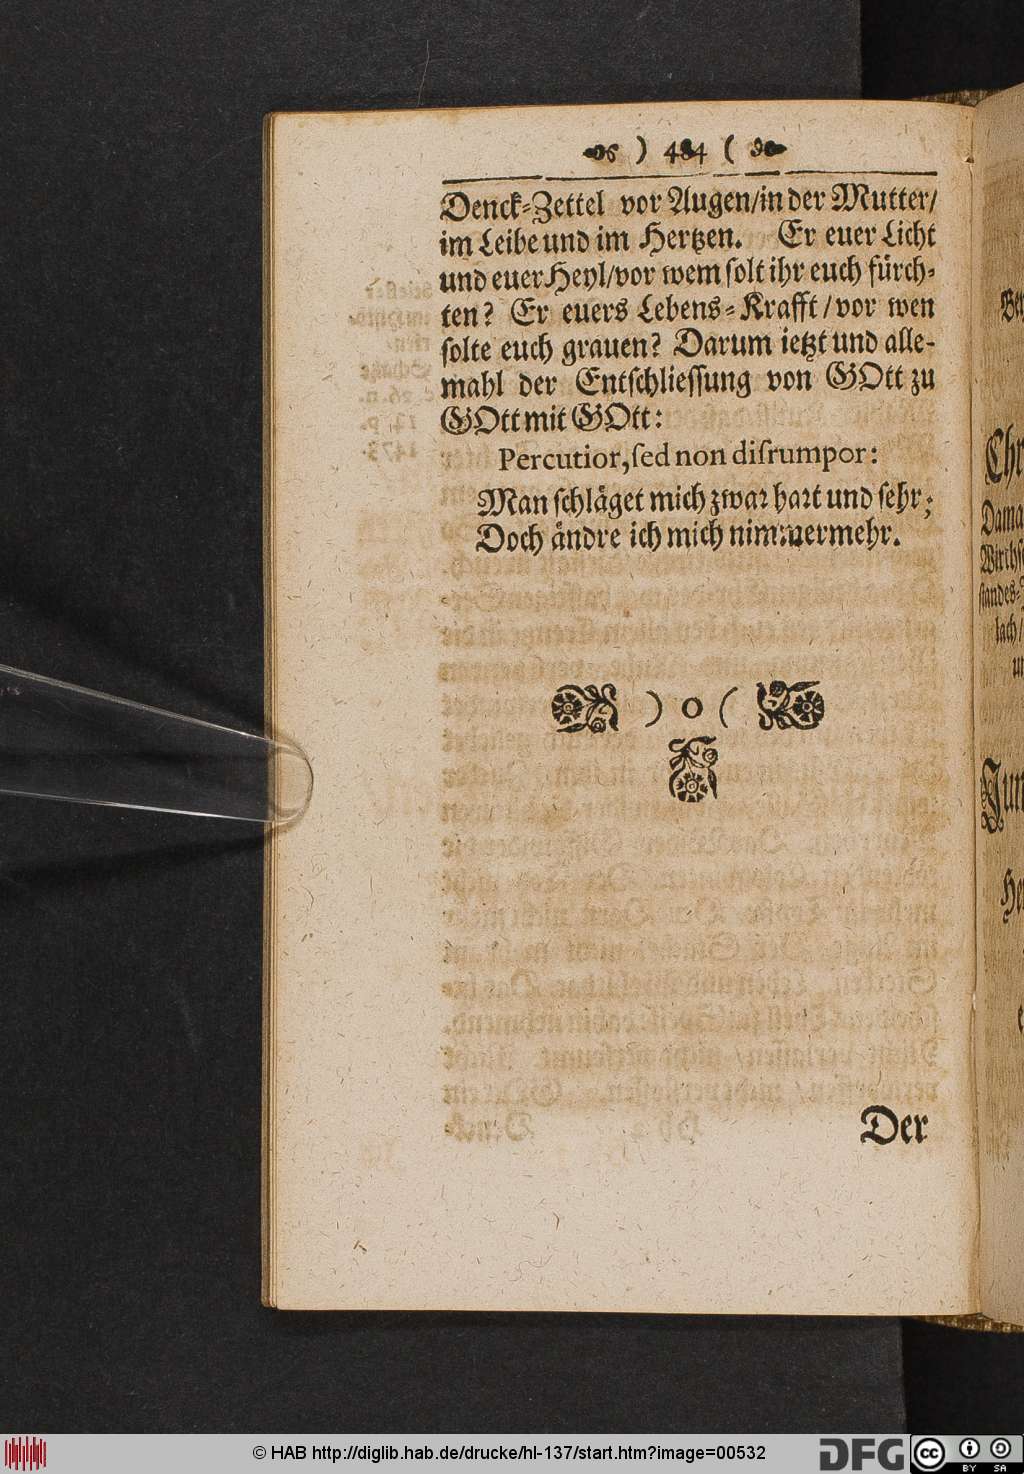 ) 484 (
Denck-Zettel vor Augen/in der Mutter/
im Leibe und im Hertzen. Er euer Licht
und euer Heyl/vor wem solt ihr euch fürch-
ten? Er euers Lebens-Krafft/vor wen
solte euch grauen? Darum ietzt und alle-
mahl der Entschliessung von GOtt zu
GOtt mit GOtt:
Percutior, sed non disrumpor:
Man schläget mich zwar hart und sehr;
Doch ändre ich mich nimmermehr.
) o (
Der
© HAB http://diglib.hab.de/drucke/hl-137/start.htm?image=00532
DFG
cc BY SA